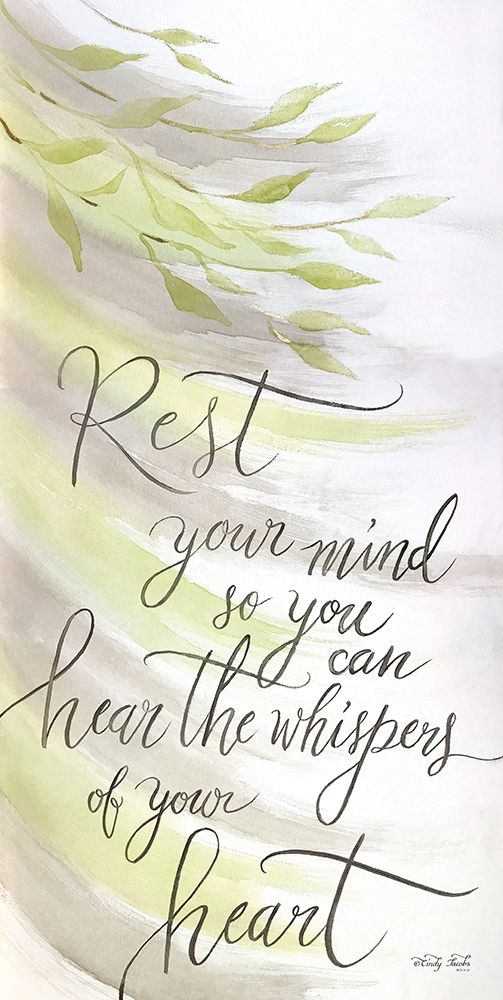 Rest
your mind
so you
can
hear the whispers
of your
heart
©Cindy Jacobs